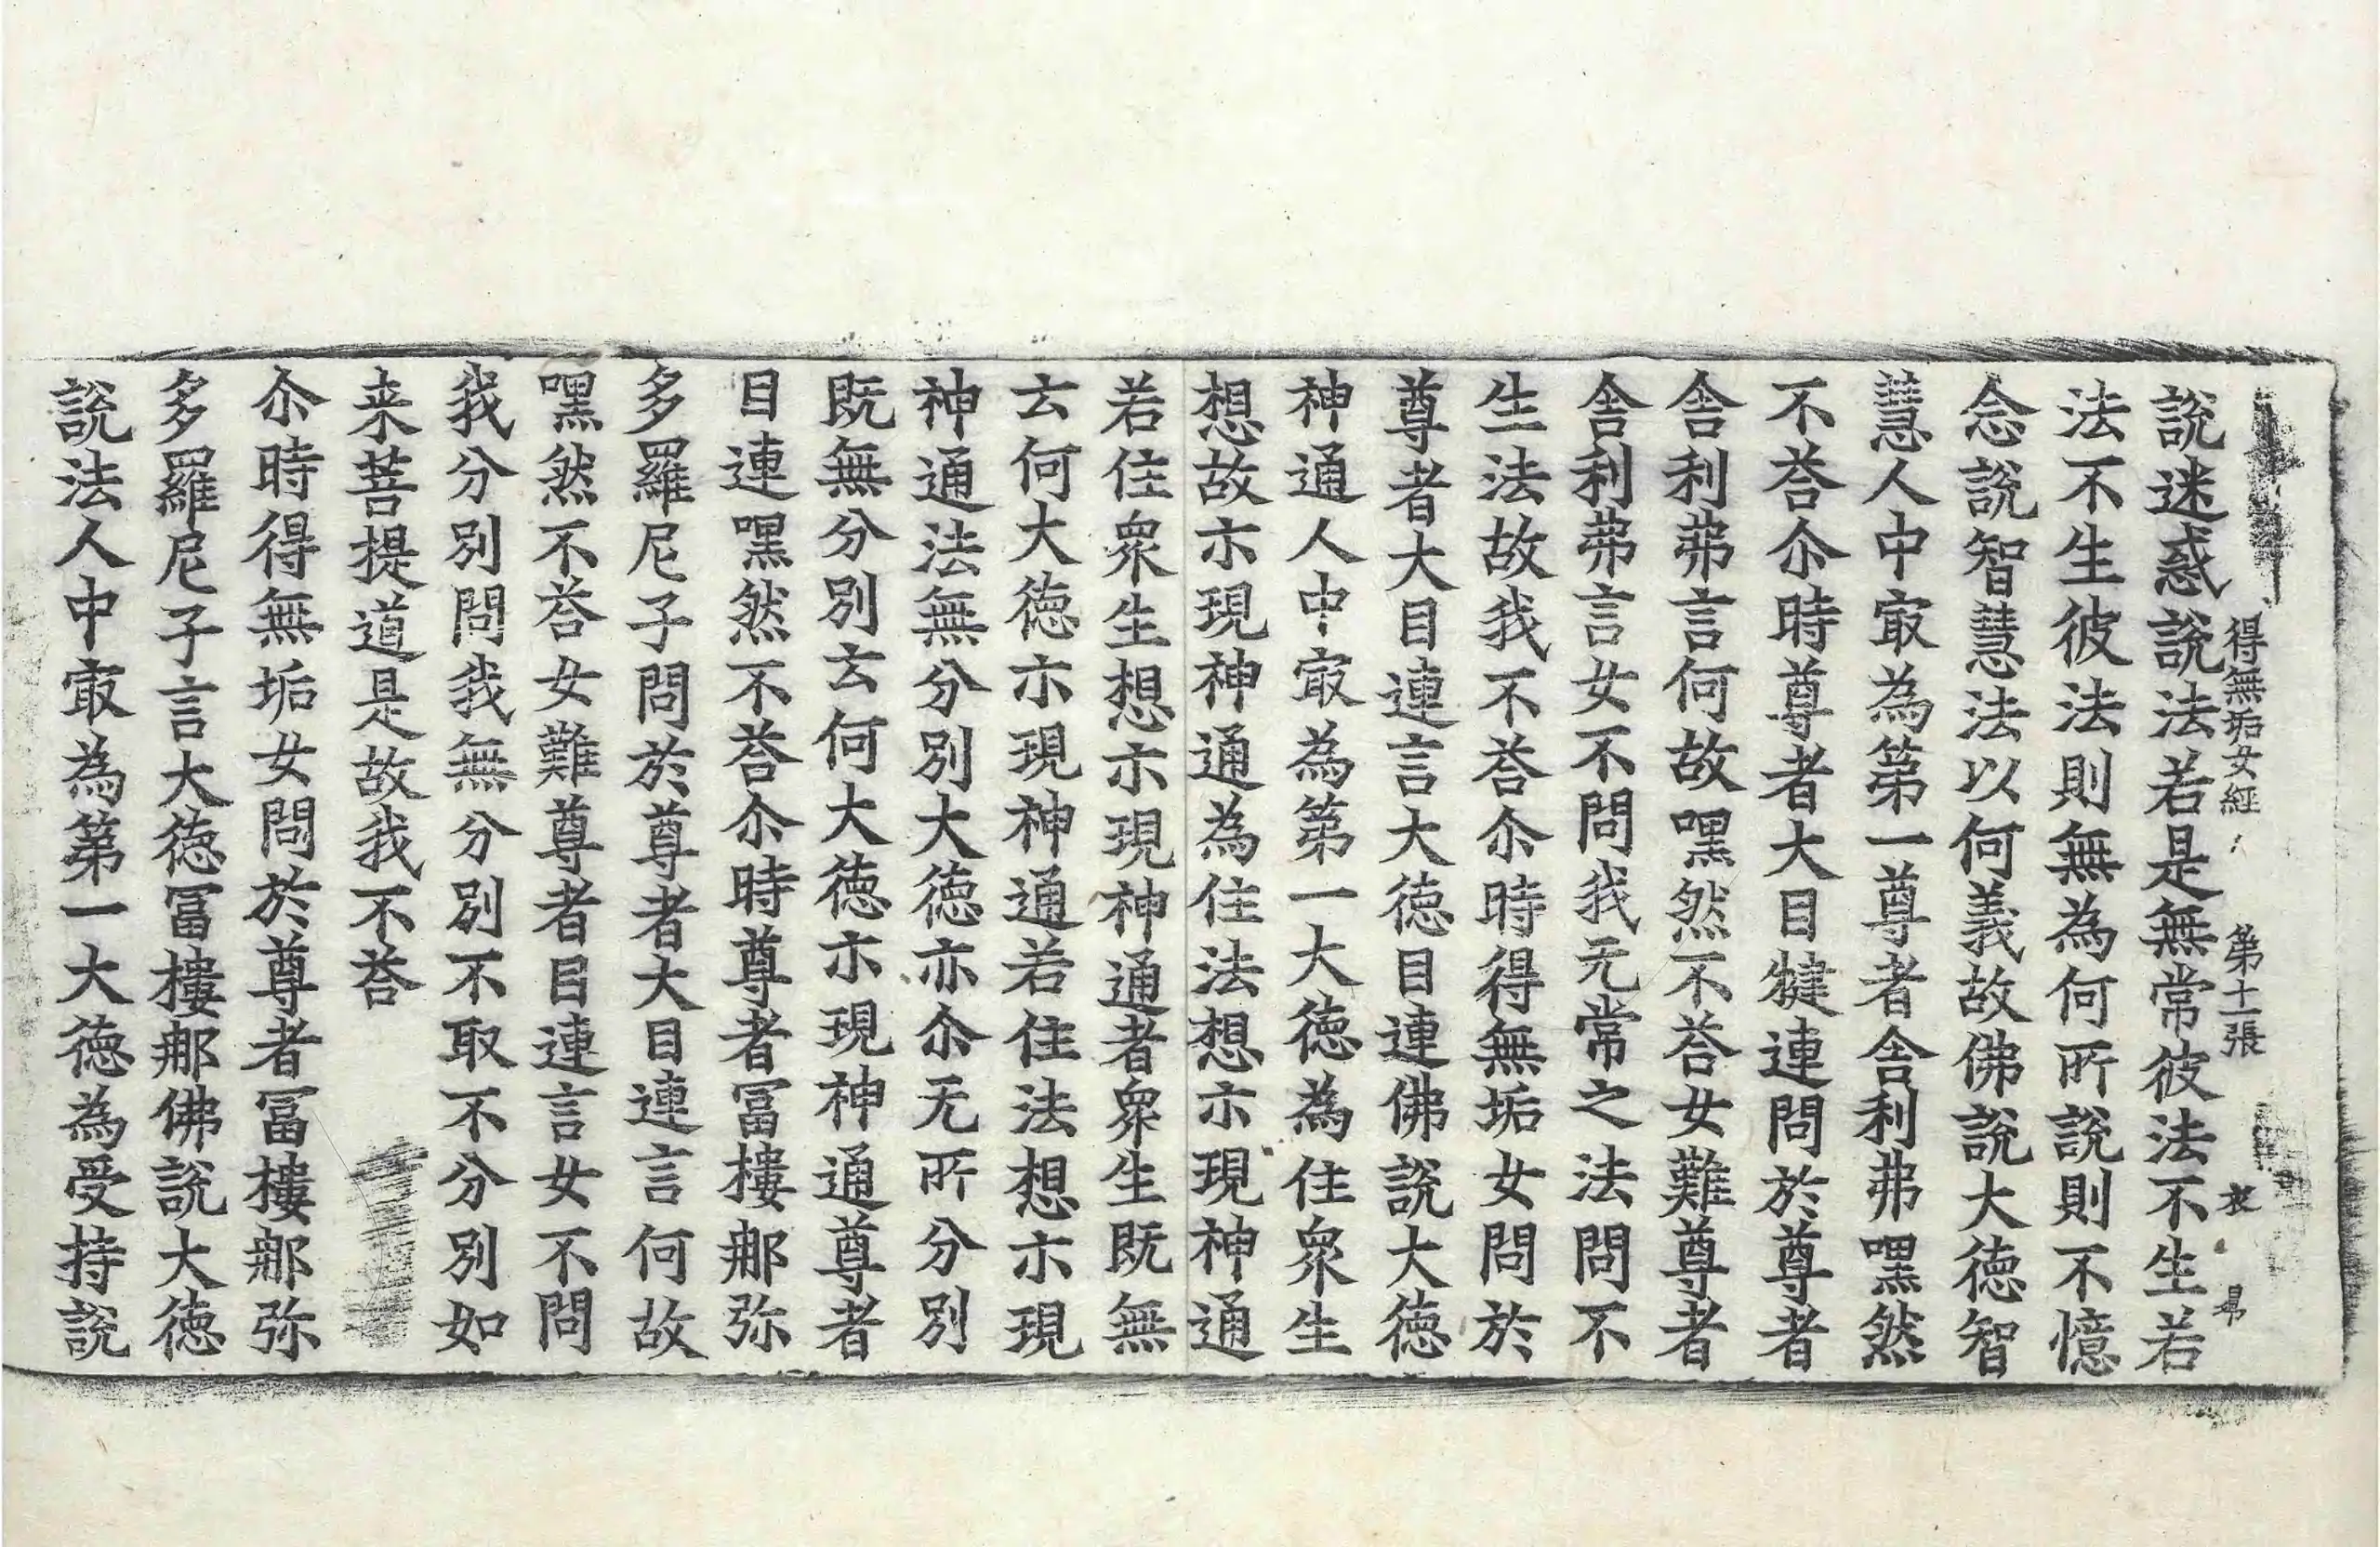 得無垢女經 第十二張 衣 易
說迷惑說法若是無常彼法不生若
法不生彼法則無為何所說則不憶
念說智慧法以何義故佛說大德智
慧人中㝡為第一尊者舎利弗嘿然
不荅尒時尊者大目揵連問於尊者
舎利弗言何故嘿然不荅女難尊者
舎利弗言女不問我无常之法問不
生法故我不荅尒時得無垢女問於
尊者大目連言大德目連佛說大德
神通人中㝡為第一大德為住衆生
想故示現神通為住法想示現神通
若住衆生想示現神通者衆生既無
云何大德示現神通若住法想示現
神通法無分別大德亦尒无所分別
既無分別云何大德示現神通尊者
目連嘿然不荅尒時尊者冨樓那弥
多羅尼子問於尊者大目連言何故
嘿然不荅女難尊者目連言女不問
我分別問我無分別不取不分別如
来菩提道是故我不荅
尒時得無垢女問於尊者冨樓那弥
多羅尼子言大德冨樓那佛說大德
說法人中㝡為第一大德為受持說